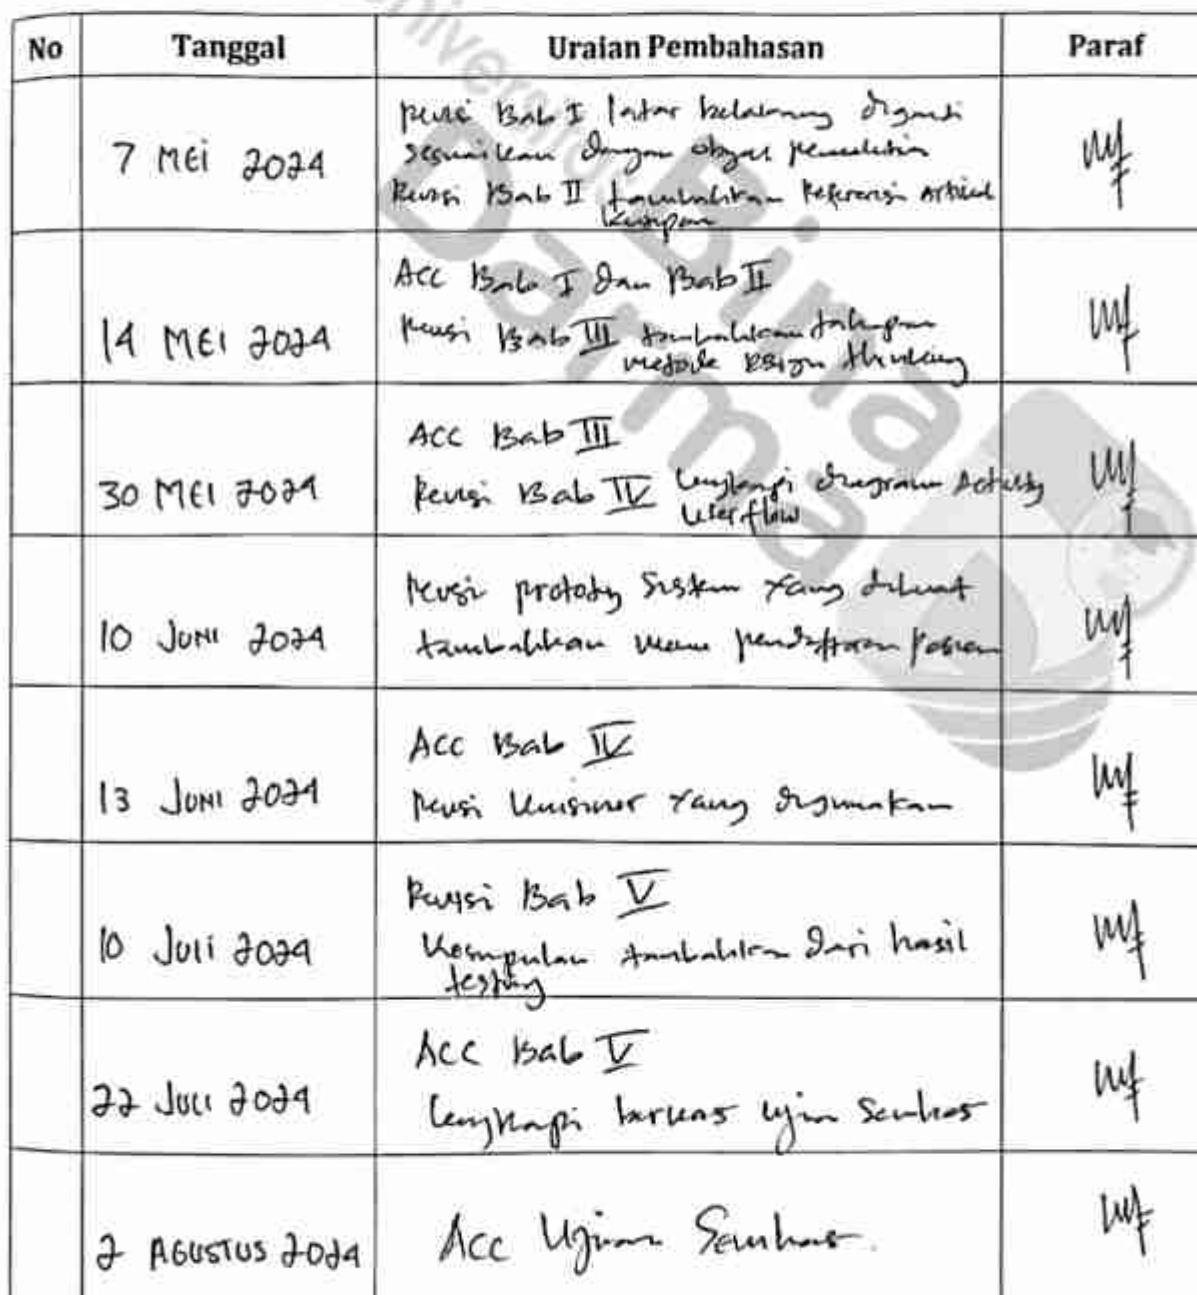 Universitas
Bina
Darma
No Tanggal Uraian Pembahasan Paraf
7 MEI 2024
Revisi Bab I latar belakang diganti
sesuaikan dengan obyek penelitian
Revisi Bab II tambahkan Referensi Artikel
14 MEI 2024
ACC Bab I dan Bab II
Revisi Bab III tambahkan tahapan
metode Design thinking
30 MEI 2024
ACC Bab III
Revisi Bab IV lengkapi diagram Activity
Userflow
10 JUNI 2024
Revisi prototy Sistem Yang dibuat
tambahkan menu pendaftaran pasien
13 JUNI 2024
ACC Bab IV
Revisi Kuisiner Yang digunakan
10 JULI 2024
Revisi Bab V
Kesimpulan tambahkan dari hasil
testing
22 JULI 2024
ACC Bab V
lengkapi berkas ujian Semhas
2 AGUSTUS 2024
ACC Ujian Semhas.